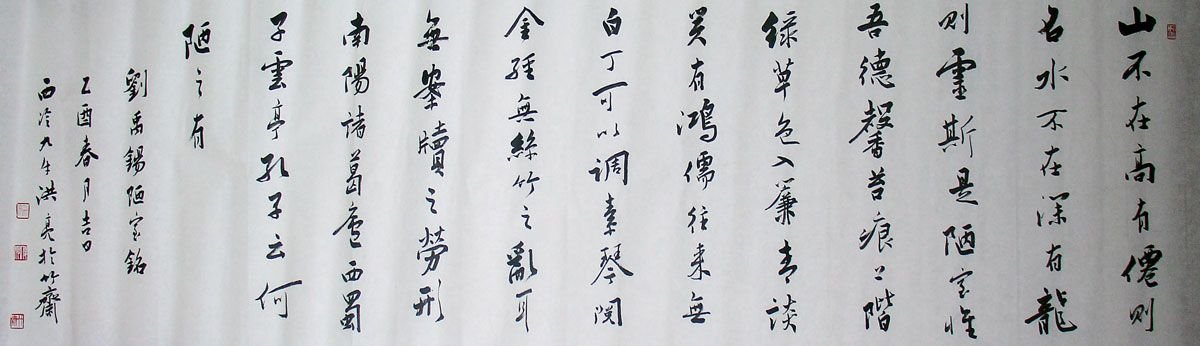 山不在高有僊則
名水不在深有龍
則靈斯是陋室惟
吾德馨苔痕上階
綠草色入簾青談
笑有鴻儒往來無
白丁可以調素琴閱
金經無絲竹之亂耳
無案牘之勞形
南陽諸葛廬西蜀
子雲亭孔子云何
陋之有
劉禹錫陋室銘
乙酉春月吉日
西泠九牛洪亮於竹齋